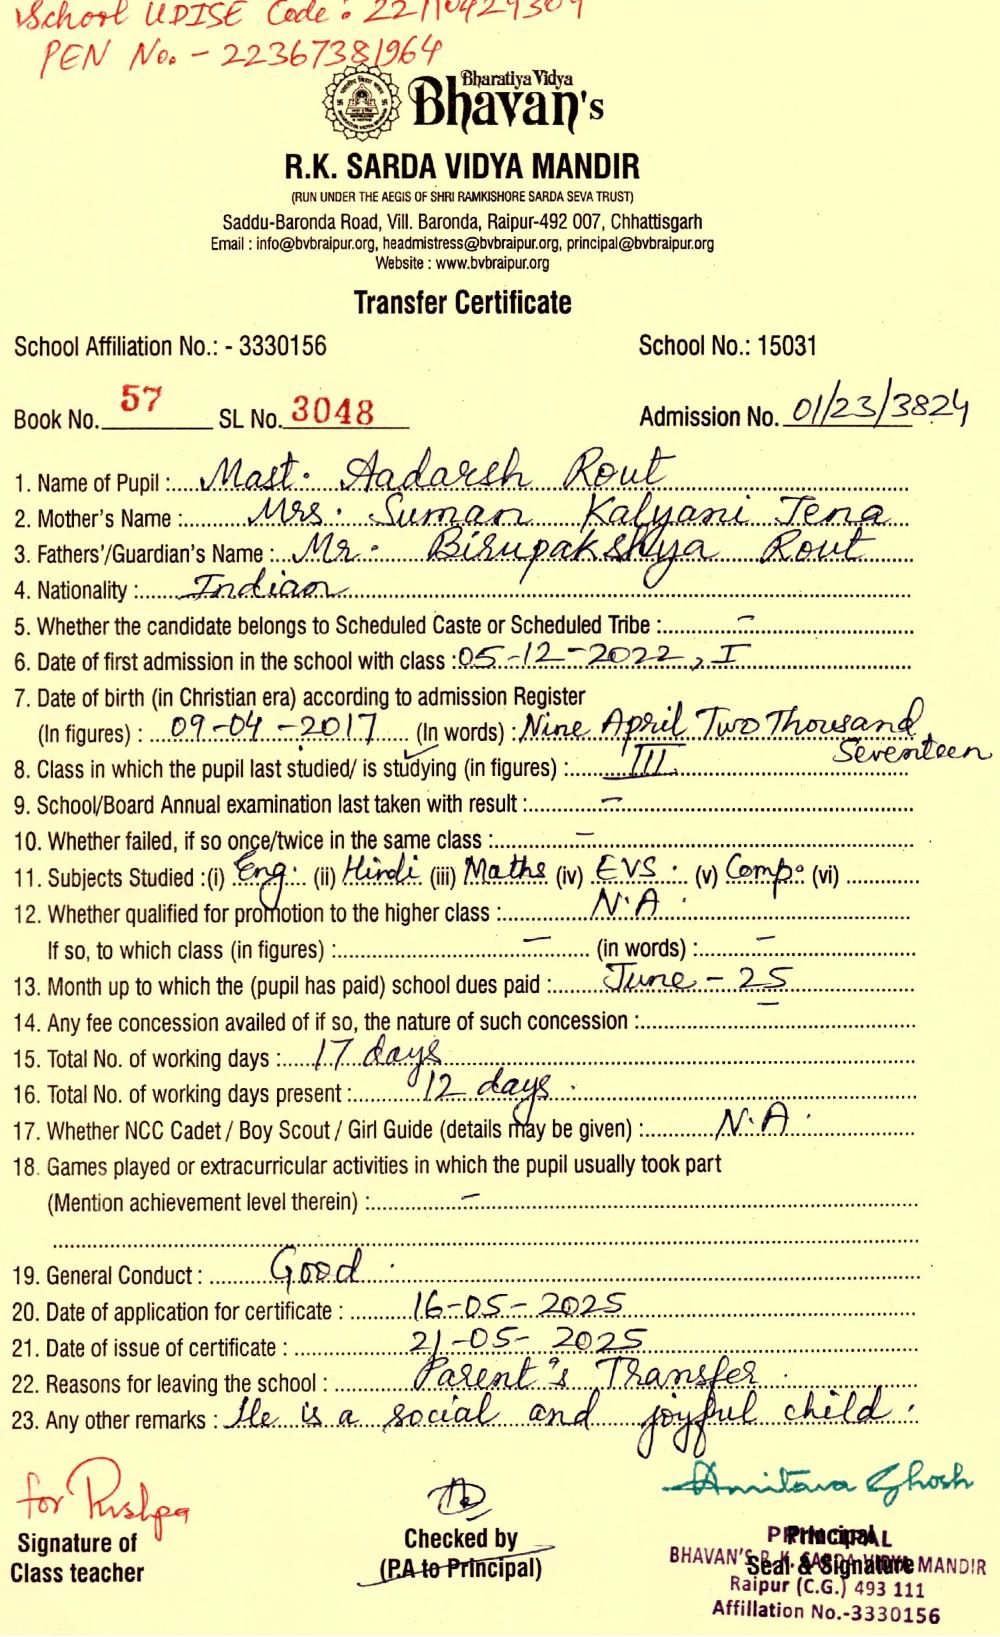 School UDISE Code : 22110429309
PEN No. - 22367381964
Bharatiya Vidya
Bhavan's
R.K. SARDA VIDYA MANDIR
(RUN UNDER THE AEGIS OF SHRI RAMKISHORE SARDA SEVA TRUST)
Saddu-Baronda Road, Vill. Baronda, Raipur-492 007, Chhattisgarh
Email : info@bvbraipur.org, headmistress@bvbraipur.org, principal@bvbraipur.org
Website : www.bvbraipur.org
Transfer Certificate
School Affiliation No.: - 3330156 School No.: 15031
Book No. 57 SL No. 3048 Admission No. 01/23/3824
1. Name of Pupil : Mast. Aadarsh Rout
2. Mother's Name : Mrs. Suman Kalyani Jena
3. Fathers'/Guardian's Name : Mr. Birupakshya Rout
4. Nationality : Indian
5. Whether the candidate belongs to Scheduled Caste or Scheduled Tribe : -
6. Date of first admission in the school with class : 05-12-2022, I
7. Date of birth (in Christian era) according to admission Register
(In figures) : 09-04-2017 (In words) : Nine April Two Thousand
Seventeen
8. Class in which the pupil last studied/ is studying (in figures) : III
9. School/Board Annual examination last taken with result : -
10. Whether failed, if so once/twice in the same class : -
11. Subjects Studied :(i) Eng. (ii) Hindi (iii) Maths (iv) EVS. (v) Comp. (vi)
12. Whether qualified for promotion to the higher class : N.A.
If so, to which class (in figures) : - (in words) : -
13. Month up to which the (pupil has paid) school dues paid : June - 25
14. Any fee concession availed of if so, the nature of such concession : -
15. Total No. of working days : 17 days
16. Total No. of working days present : 12 days.
17. Whether NCC Cadet / Boy Scout / Girl Guide (details may be given) : N.A.
18. Games played or extracurricular activities in which the pupil usually took part
(Mention achievement level therein) : -
19. General Conduct : Good.
20. Date of application for certificate : 16-05-2025
21. Date of issue of certificate : 21-05-2025
22. Reasons for leaving the school : Parent's Transfer.
23. Any other remarks : He is a social and joyful child.
for Pushpa
Amitava Ghosh
Signature of
Class teacher
Checked by
(P.A to Principal)
Principal
Seal & Signature
PRINCIPAL
BHAVAN'S R.K. SARDA VIDYA MANDIR
Raipur (C.G.) 493 111
Affillation No.-3330156